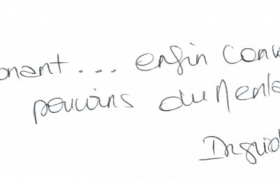 onant... enfin conv
pouvoirs du Menta
Ingrid